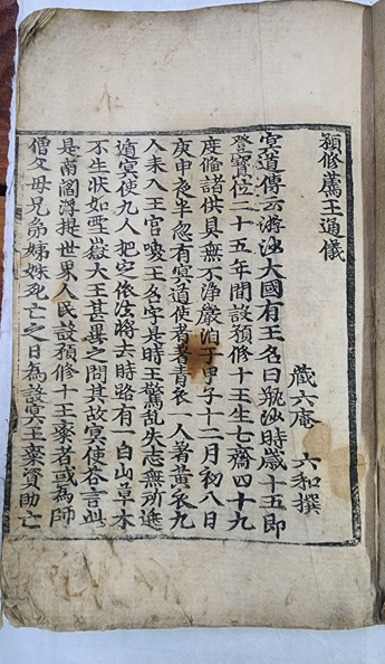 預修薦王通儀
藏六庵 六和撰
冥道傳云㳺沙大國有王名曰甁沙時歲十五即
登寳位二十五年間設預修十王生七齋四十九
度俻諸供具無不浄嚴泊于甲子十二月初八日
庚申夜半忽有冥道使者著青衣一人著黃衣九
入来入王宮唤王名字是時王驚乱失志無所逃
適冥使九人把定依法将去時路有一白山草木
不生状如雪嶽大王甚異之問其故冥使荅言此
是南閻浮提世界人民設預修十王齋者或為師
僧父母兄弟姊妹死亡之日為設冥王齋資助亡